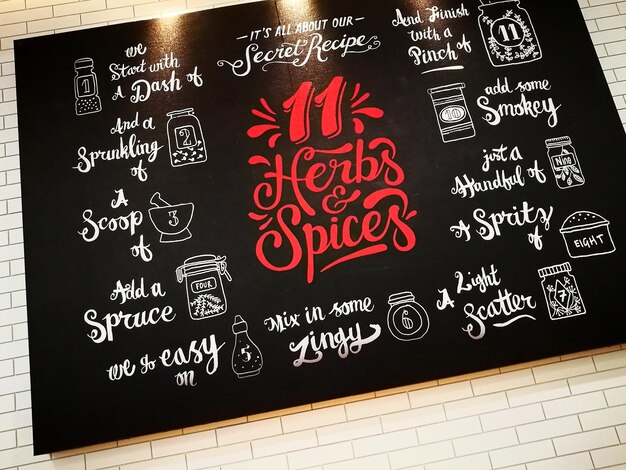 IT'S ALL ABOUT OUR
Secret Recipe
11
Herbs
&
Spices
we
Start with
A Dash of
1
And a
Sprunkling
of
2
A
Scoop
of
3
Add a
Spruce
FOUR
we go easy
on
5
Mix in some
Zingy
6
A Light
Scatter
7
A Spritz
of
EIGHT
just a
Handful of
Nine
add some
Smokey
10
And Finish
with a
Pinch of
11